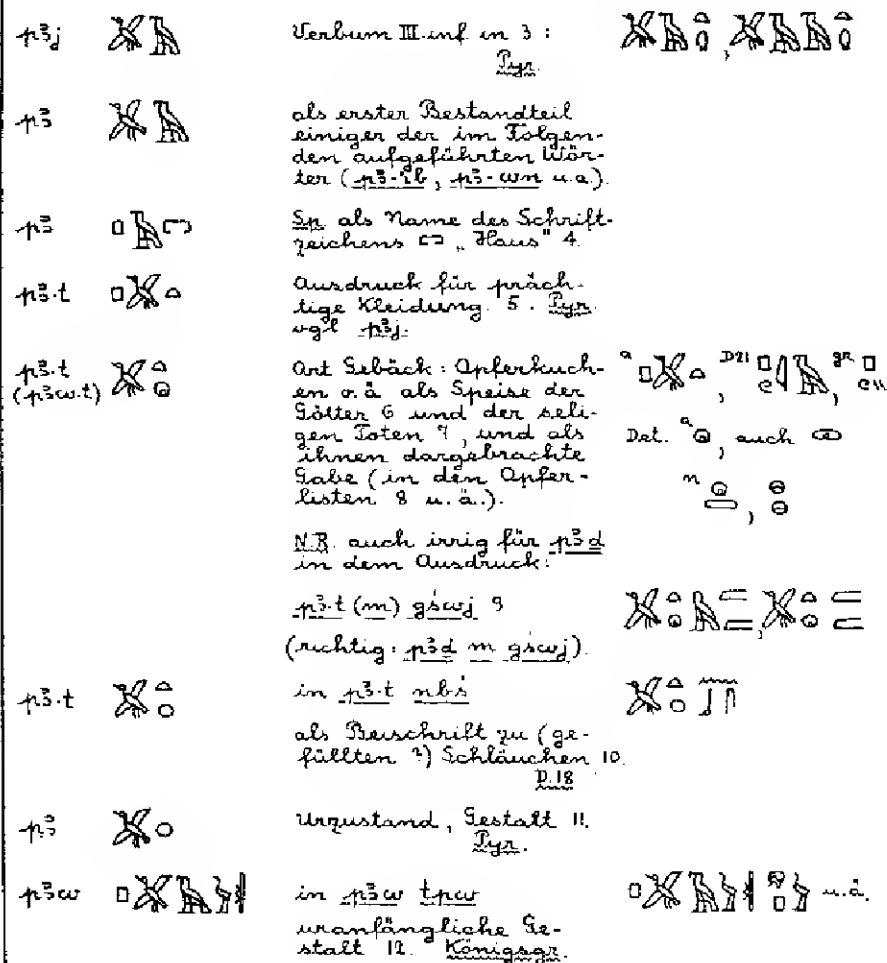 pꜣj 𓅮𓄿 Verbum III. inf. in 3 :
Pyr.
pꜣ 𓅮𓄿 als erster Bestandteil
einiger der im Folgen-
den aufgeführten Wör-
ter (pꜣ-ib, pꜣ-wn u.a.).
pꜣ 𓊪𓄿𓉐 Sp als Name des Schrift-
zeichens 𓉐 „Haus" 4.
pꜣ.t 𓊪𓅮𓏏 Ausdruck für präch-
tige Kleidung. 5. Pyr.
vgl pꜣj.
pꜣ.t 𓅮𓏏𓊗 Art Gebäck: Opferkuch-
(pꜣw.t) en o.ä als Speise der
Götter 6 und der seli-
gen Toten 7, und als
ihnen dargebrachte
Gabe (in den Opfer-
listen 8 u. ä.).
a 𓊪𓅮𓏏, D21, gR
Det. a 𓊗, auch
n
N.R. auch irrig für pꜣd
in dem Ausdruck:
pꜣ.t (m) gśwj 9
(richtig: pꜣd m gśwj).
pꜣ.t 𓅮𓏏 in pꜣ.t nbś
als Beischrift zu (ge-
füllten ?) Schläuchen 10.
D.18
pꜣ 𓅮 Urzustand, Gestalt 11.
Pyr.
pꜣw 𓊪𓅮𓄿 in pꜣw tpw u.ä.
uranfängliche Ge-
stalt 12. Königsgr.